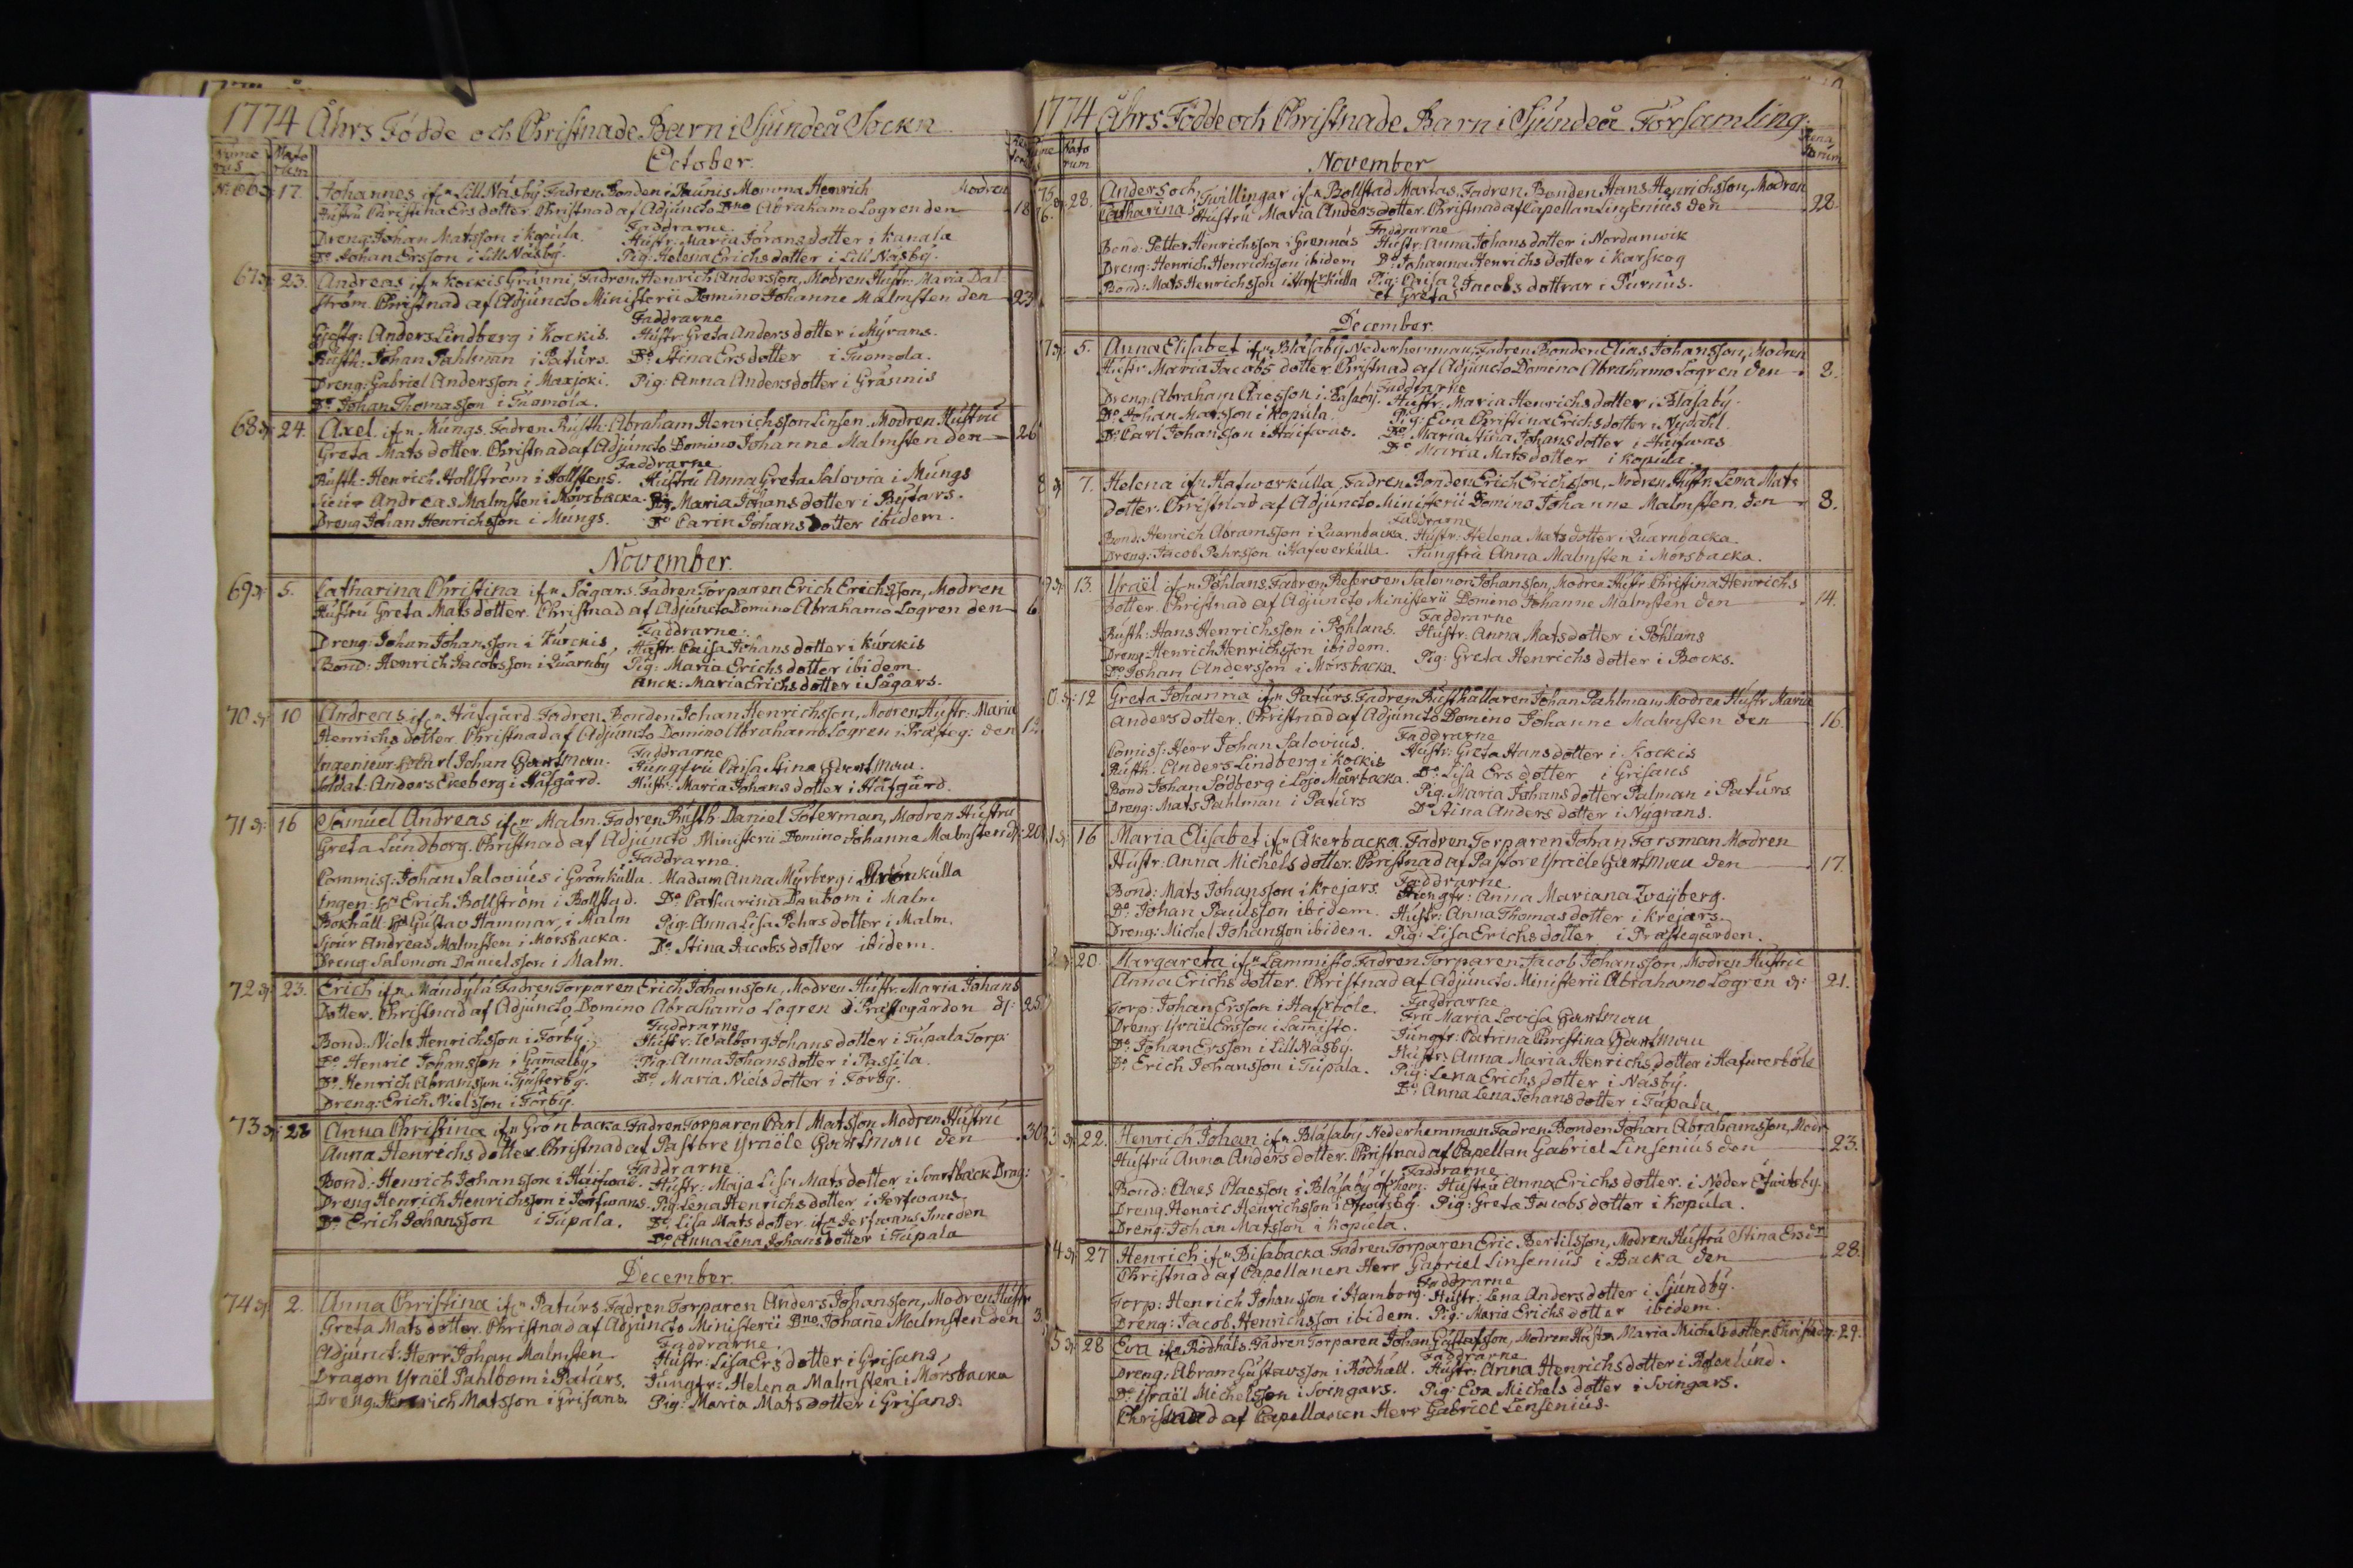 1774 Åhrs Födde och Christnade Barn i Sjundeå Sockn
October.
N: 66 17. Johannes ifrn Lill Näsby. Fadren Bonden i Staunis Momma Henrich Modren
Hustru Christina Ersdotter. Christnad af Adjuncto Dno Abrahamo Logren den 18
Faddrarne.
Dreng: Johan Matsson i Kopula. Hustr: Maria Joransdotter i Kanala
Do Johan Ersson i Lill Näsby. Pig: Helena Erichsdotter i Lill Näsby.
67 23. Andreas ifrn Kockis Gränni, Fadren Henrich Andersson, Modren Hustr: Maria Dal-
ström. Christnad af Adjuncto Ministerii Domino Johanne Malmsten den 23
Faddrarne
Gjestg: Anders Lindberg i Kockis. Hustr: Greta Andersdotter i Myrans.
Rusth: Johan Pahlman i Paturs. Do Stina Ersdotter i Tuomola.
Dreng: Gabriel Andersson i Maxjoki. Pig: Anna Andersdotter i Grännis
Do Johan Thomasson i Tuomola.
68 24. Axel ifrn Mungs. Fadren Rusth: Abraham Henrichsson Linsen. Modren Hustru
Greta Matsdotter. Christnad af Adjuncto Domino Johanne Malmsten den 26
Faddrarne
Rusth: Henrich Hollström i Hollstens. Hustru Anna Greta Salovia i Mungs
Andreas Malmsten i Mörsbacka. Pig: Maria Johansdotter i Bystars.
Dreng Johan Henrichsson i Mungs. Do Carin Johansdotter ibidem.
November.
69 5. Catharina Christina ifrn Sågars. Fadren Torparen Erich Erichsson, Modren
Hustru Greta Matsdotter. Christnad af Adjuncto Domino Abrahamo Logren den 6
Faddrarne.
Dreng: Johan Johansson i Kurckis, Hustr: Caisa Johansdotter i Kurckis
Bond: Henrich Jacobsson i Quarnby Pig: Maria Erichsdotter ibidem.
Anck: Maria Erichsdotter i Sågars.
70 10 Andreas ifrn Hafgård. Fadren Bonden Johan Henrichsson, Modren Hustr: Maria
Henrichsdotter. Christnad af Adjuncto Domino Abrahamo Logren i Præsteg: den 12
Faddrarne
Ingenieur Hr Carl Johan Gartman. Jungfru Caisa Stina Gartman.
Soldat: Anders Ekeberg i Hafgård. Hustr: Maria Johansdotter i Hafgård.
71 16 Samuel Andreas ifrn Malm. Fadren Rusth: Daniel Söterman, Modren Hustru
Greta Lundborg. Christnad af Adjuncto Ministerii Domino Johanne Malmsten d: 20
Faddrarne.
Commiss: Johan Salovius i Grönkulla. Madam Anna Myrberg i Grönkulla
Ingen: Hr Erich Bollström i Bollstad. Do Catharina Danbom i Malm
Bokhåll: Hr Gustav Hammar, i Malm Pig: Anna Lisa Pehrsdotter i Malm.
Sjour Andreas Malmsten i Mörsbacka. Do Stina Jacobsdotter ibidem.
Dreng Salomon Danielsson i Malm.
72 23. Erich ifrn Mändylä Fadren Torparen Erich Johansson, Modren Hustr: Maria Johans
dotter. Christnad af Adjuncto Domino Abrahamo Logren i Præstegården d: 25
Faddrarne
Bond: Niels Henrichsson i Forby; Hustr: Walborg Johansdotter i Tupala Torp:
Do Henric Johansson i Gammelby, Pig: Anna Johansdotter i Passila.
Do Henrich Abramsson i Tjusterby. Do Maria Nielsdotter i Forby.
Dreng: Erich Nielsson i Forby.
73 28 Anna Christina ifrn Grönbacka. Fadren Torparen Carl Matsson Modren Hustru
Anna Henrichsdotter. Christnad af Pastore Israële Gartman den 30
Faddrarne
Bond: Henrich Johansson i Haifwas. Hustr: Maja Lisa Matsdotter i Svartbäck Dreng:
Dreng Henrich Henrichsson i Jerfwans. Pig: Lena Henrichsdotter i Jerfwans.
Do Erich Johansson i Tupala. Do Lisa Matsdotter ifrn Jerfwans Smeden
Do Anna Lena Johansdotter i Tupala
December.
74 2. Anna Christina ifrn Paturs Fadren Torparen Anders Johansson, Modren Hustr:
Greta Matsdotter. Christnad af Adjuncto Ministerii Dno Johanne Malmsten den 3.
Faddrarne.
Adjunct: Herr Johan Malmsten Hustr: Lisa Ersdotter i Grisans,
Dragon Israël Pahlbom i Paturs. Jungfr: Helena Malmsten i Mörsbacka
Dreng Henrich Matsson i Grisans. Pig: Maria Matsdotter i Grisans.
1774 Åhrs Födde och Christnade Barn i Sjundeå Församling.
November
75 76. 28. Anders och Catharina Twillingar ifrn Bollstad Martas. Fadren Bonden Hans Henrichsson, Modren
Hustru Maria Andersdotter. Christnad af Capellan Linsenius den 28.
Faddrarne
Bond: Petter Henrichsson i Grennäs Hustr: Anna Johansdotter i Nordanwik
Dreng: Henrich Henrichsson ibidem Do Johanna Henrichsdotter i Karskog
Bond: Mats Henrichsson i Kulla Pig: Caisa et Greta Jacobsdottrar i Purnus.
December.
7 5. Anna Elisabet ifrn Blåsaby Nederhemman, Fadren Bonden Elias Johansson, Modren
Hustr: Maria Jacobsdotter. Christnad af Adjuncto Domino Abrahamo Logren den 8.
Faddrarne
Dreng Abraham Claesson i Blåsaby. Hustr: Maria Henrichsdotter i Blåsaby.
Do Johan Matsson i Kopula. Pig: Eva Christina Erichsdotter i Nydahl
Do Carl Johansson i Haifwas. Do Maria Stina Johansdotter i Haifwas
Do Maria Matsdotter i Kopula.
8 7. Helena ifrn Hafwerkulla, Fadren Bonden Erich Erichsson, Modren Hustr: Lena Mats
dotter. Christnad af Adjuncto Ministerii Domino Johanne Malmsten den 8.
Faddrarne
Bond: Henrich Abramsson i Quarnbacka. Hustr: Helena Matsdotter i Quarnbacka.
Dreng: Jacob Pehrsson i Hafwerkulla. Jungfru Anna Malmsten i Mörsbacka.
9 13. Israël ifrn Pöhlans. Fadren Reserven Salomon Johansson, Modren Hustr: Christina Henrichs
dotter. Christnad af Adjuncto Ministerii Domino Johanne Malmsten den 14.
Faddrarne
Rusth: Hans Henrichsson i Pöhlans. Hustr: Anna Matsdotter i Pöhlans
Dreng Henrich Henrichsson ibidem. Pig: Greta Henrichsdotter i Bocks.
Do Johan Andersson i Mörsbacka.
0 12 Greta Johanna ifrn Paturs. Fadren Rusthållaren Johan Pahlman, Modren Hustr Maria
Andersdotter. Christnad af Adjuncto Domino Johanne Malmsten den 16.
Faddrarne
Comiss: Herr Johan Salovius. Hustr: Greta Hansdotter i Kockis
Rusth: Anders Lindberg i Kockis Do Lisa Ersdotter i Grisans
Bond Johan Södberg i Lojo Mårbacka. Pig: Maria Johansdotter Palman i Paturs
Dreng: Mats Pahlman i Paturs Do Stina Andersdotter i Nygrans.
1 16 Maria Elisabet ifrn Åkerbacka. Fadren Torparen Johan Forsman Modren
Hustr: Anna Michelsdotter. Christnad af Pastore Israële Gartman den 17.
Faddrarne
Bond: Mats Johansson i Krejars. Jungfr: Anna Mariana Zweyberg.
Do Johan Paulsson ibidem. Hustr: Anna Thomasdotter i Krejars.
Dreng: Michel Johansson ibidem. Pig: Lisa Erichsdotter i Præstegården.
2 20. Margareta ifrn Lammisto Fadren Torparen Jacob Johansson, Modren Hustru
Anna Erichsdotter. Christnad af Adjuncto Ministerii Abrahamo Logren d: 21.
Faddrarne
Torp: Johan Ersson i Hafrböle. Fru Maria Lovisa Gartman
Dreng Israël Ersson i Lamisto. Jungfr: Catrina Christina Gartman
Do Johan Ersson i Lill Näsby. Hustr: Anna Maria Henrichsdotter i Hafwerböle
Do Erich Johansson i Tupala. Pig: Lena Erichsdotter i Näsby.
Do Anna Lena Johansdotter i Tupala
3 22. Henrich Johan ifrn Blåsaby Nederhemman Fadren Bonden Johan Abrahamsson, Modr:
Hustru Anna Andersdotter. Christnad af Capellan Gabriel Linsenius den 23.
Faddrarne
Bond: Claes Claesson i Blåsaby öfrhem: Hustru Anna Erichsdotter i Neder Efwitsby.
Dreng Henric Henrichsson i Efwitsby. Pig: Greta Jacobsdotter i Kopula.
Dreng: Johan Matsson i Kopula.
4 27 Henrich ifrn Bisabacka Fadren Torparen Eric Bertilsson, Modren Hustru Stina Ersdr
Christnad af Capellanen Herr Gabriel Linsenius i Backa den 28.
Faddrarne
Torp: Henrich Johansson i Hamborg. Hustr: Lena Andersdotter i Sjundby.
Dreng: Jacob Henrichsson ibidem. Pig: Maria Erichsdotter ibidem.
5 28 Eva ifrn Rödhäls. Fadren Torparen Johan Gustafsson, Modren Hustr Maria Michelsdotter. Christnd: 29.
Faddrarne
Dreng: Abram Gustavsson i Rödhäll. Hustr: Anna Henrichsdotter i Rosenlund.
Do Israël Michelsson i Svingars. Pig: Eva Michelsdotter i Svingars.
Christnad af Capellanen Herr Gabriel Linsenius.